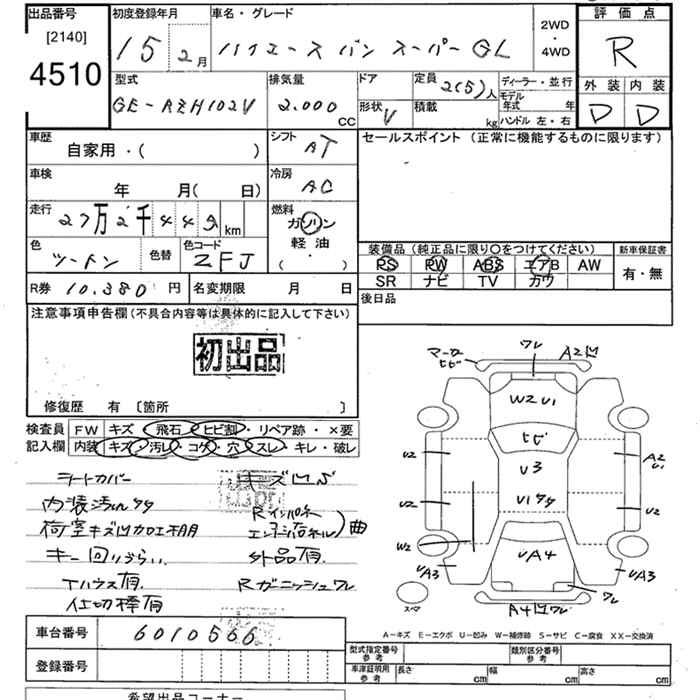 出品番号 初度登録年月 車名・グレード 2WD・4WD 評価点
[2140]
4510
15 2月 ハイエース バン スーパーGL R
型式 排気量 ドア 定員 2(5)人 ディーラー・並行 外装 内装
GE-RZH102V 2.000 CC 形状 V 積載 kg モデル年式 年 D D
ハンドル 左・右
車歴 シフト セールスポイント(正常に機能するものに限ります)
自家用・( ) AT
車検 冷房
年 月( 日) AC
走行 燃料
27万2千449km ガソリン
軽油
( ・ )
色 色替 色コード 装備品(純正品に限り○をつけてください) 新車保証書
ツートン 2FJ PS PW ABS エアB AW 有・無
SR ナビ TV カワ
R券 10.380円 名変期限 月 日 後日品
注意事項申告欄(不具合内容等は具体的に記入して下さい)
初出品
修復歴 有 〔箇所 〕
検査員 FW キズ・飛石・ヒビ割・リペア跡・×要
記入欄 内装 キズ・汚レ・コゲ・穴・スレ・キレ・破レ
シートカバー キズ凹多
内装汚れ多
荷室キズ凹加工 Rインパネ
エンジンパネル)曲
キー回りづらい 外品有
Tハウス有. Rガーニッシュワレ
仕切棒有
マーカー
ヒビ
ワレ
A2凹
W2 U1
ヒビ
U2
U3
A2
U1
U1多
U2
U2
W2
UA3
UA4
UA3
ワレ
スペア
A4凹ワレ
A-キズ E-エクボ U-凹み W-補修跡 S-サビ C-腐食 XX-交換済
車台番号 6010566
登録番号
型式指定番号 参考 類別区分番号 参考
車津証明用 参考 長さ cm 幅 cm 高さ cm
希望出品コーナー